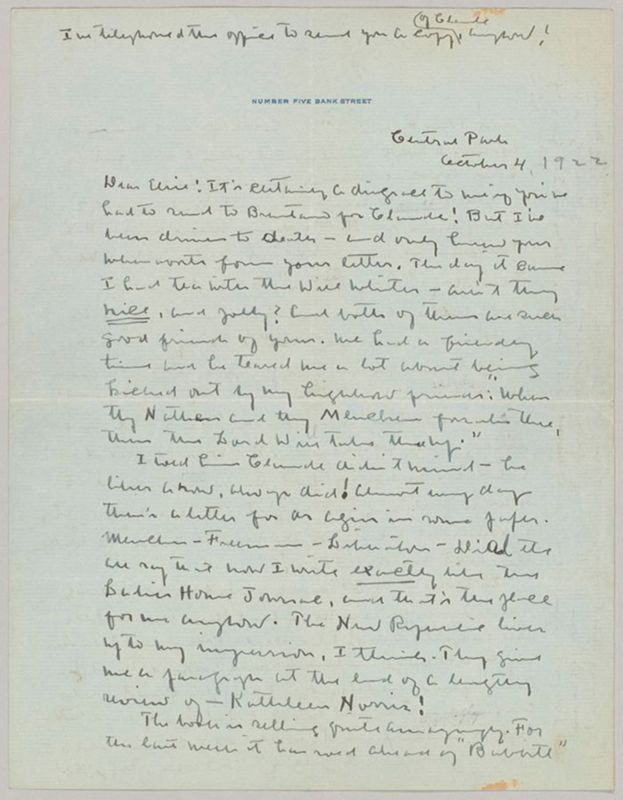 of Claude
I've telephoned the office to send you a copy, anyhow!
NUMBER FIVE BANK STREET
Central Park
October 4, 1922
Dear Elsie! It's certainly a disgrace to me if you've
had to send to Brentano for Claude! But I've
been driven to death – and only knew your
whereabouts from your letter. The day it came
I had tea with the Will Whites – ain't they
nice, and jolly? And both of them are such
good friends of yours. We had a friendly
time and he teased me a lot about being
kicked out by my highbrow friends: "When
thy Nathan and thy Mencken forsake thee,
then the Lord Will takes thee up."
I told him Claude didn't mind – he
likes a row, always did! Almost every day
there's a letter for or agin in some paper.
Mencken – Freeman – Liberator – Dial etc
all say that now I write exactly like the
Ladies Home Journal, and that's the place
for me anyhow. The New Republic lives
up to my impression, I think. They give
me a paragraph at the end of a lengthy
review of – Kathleen Norris!
The book is selling quite amazingly. For
the last week it has sold ahead of "Babbitt"